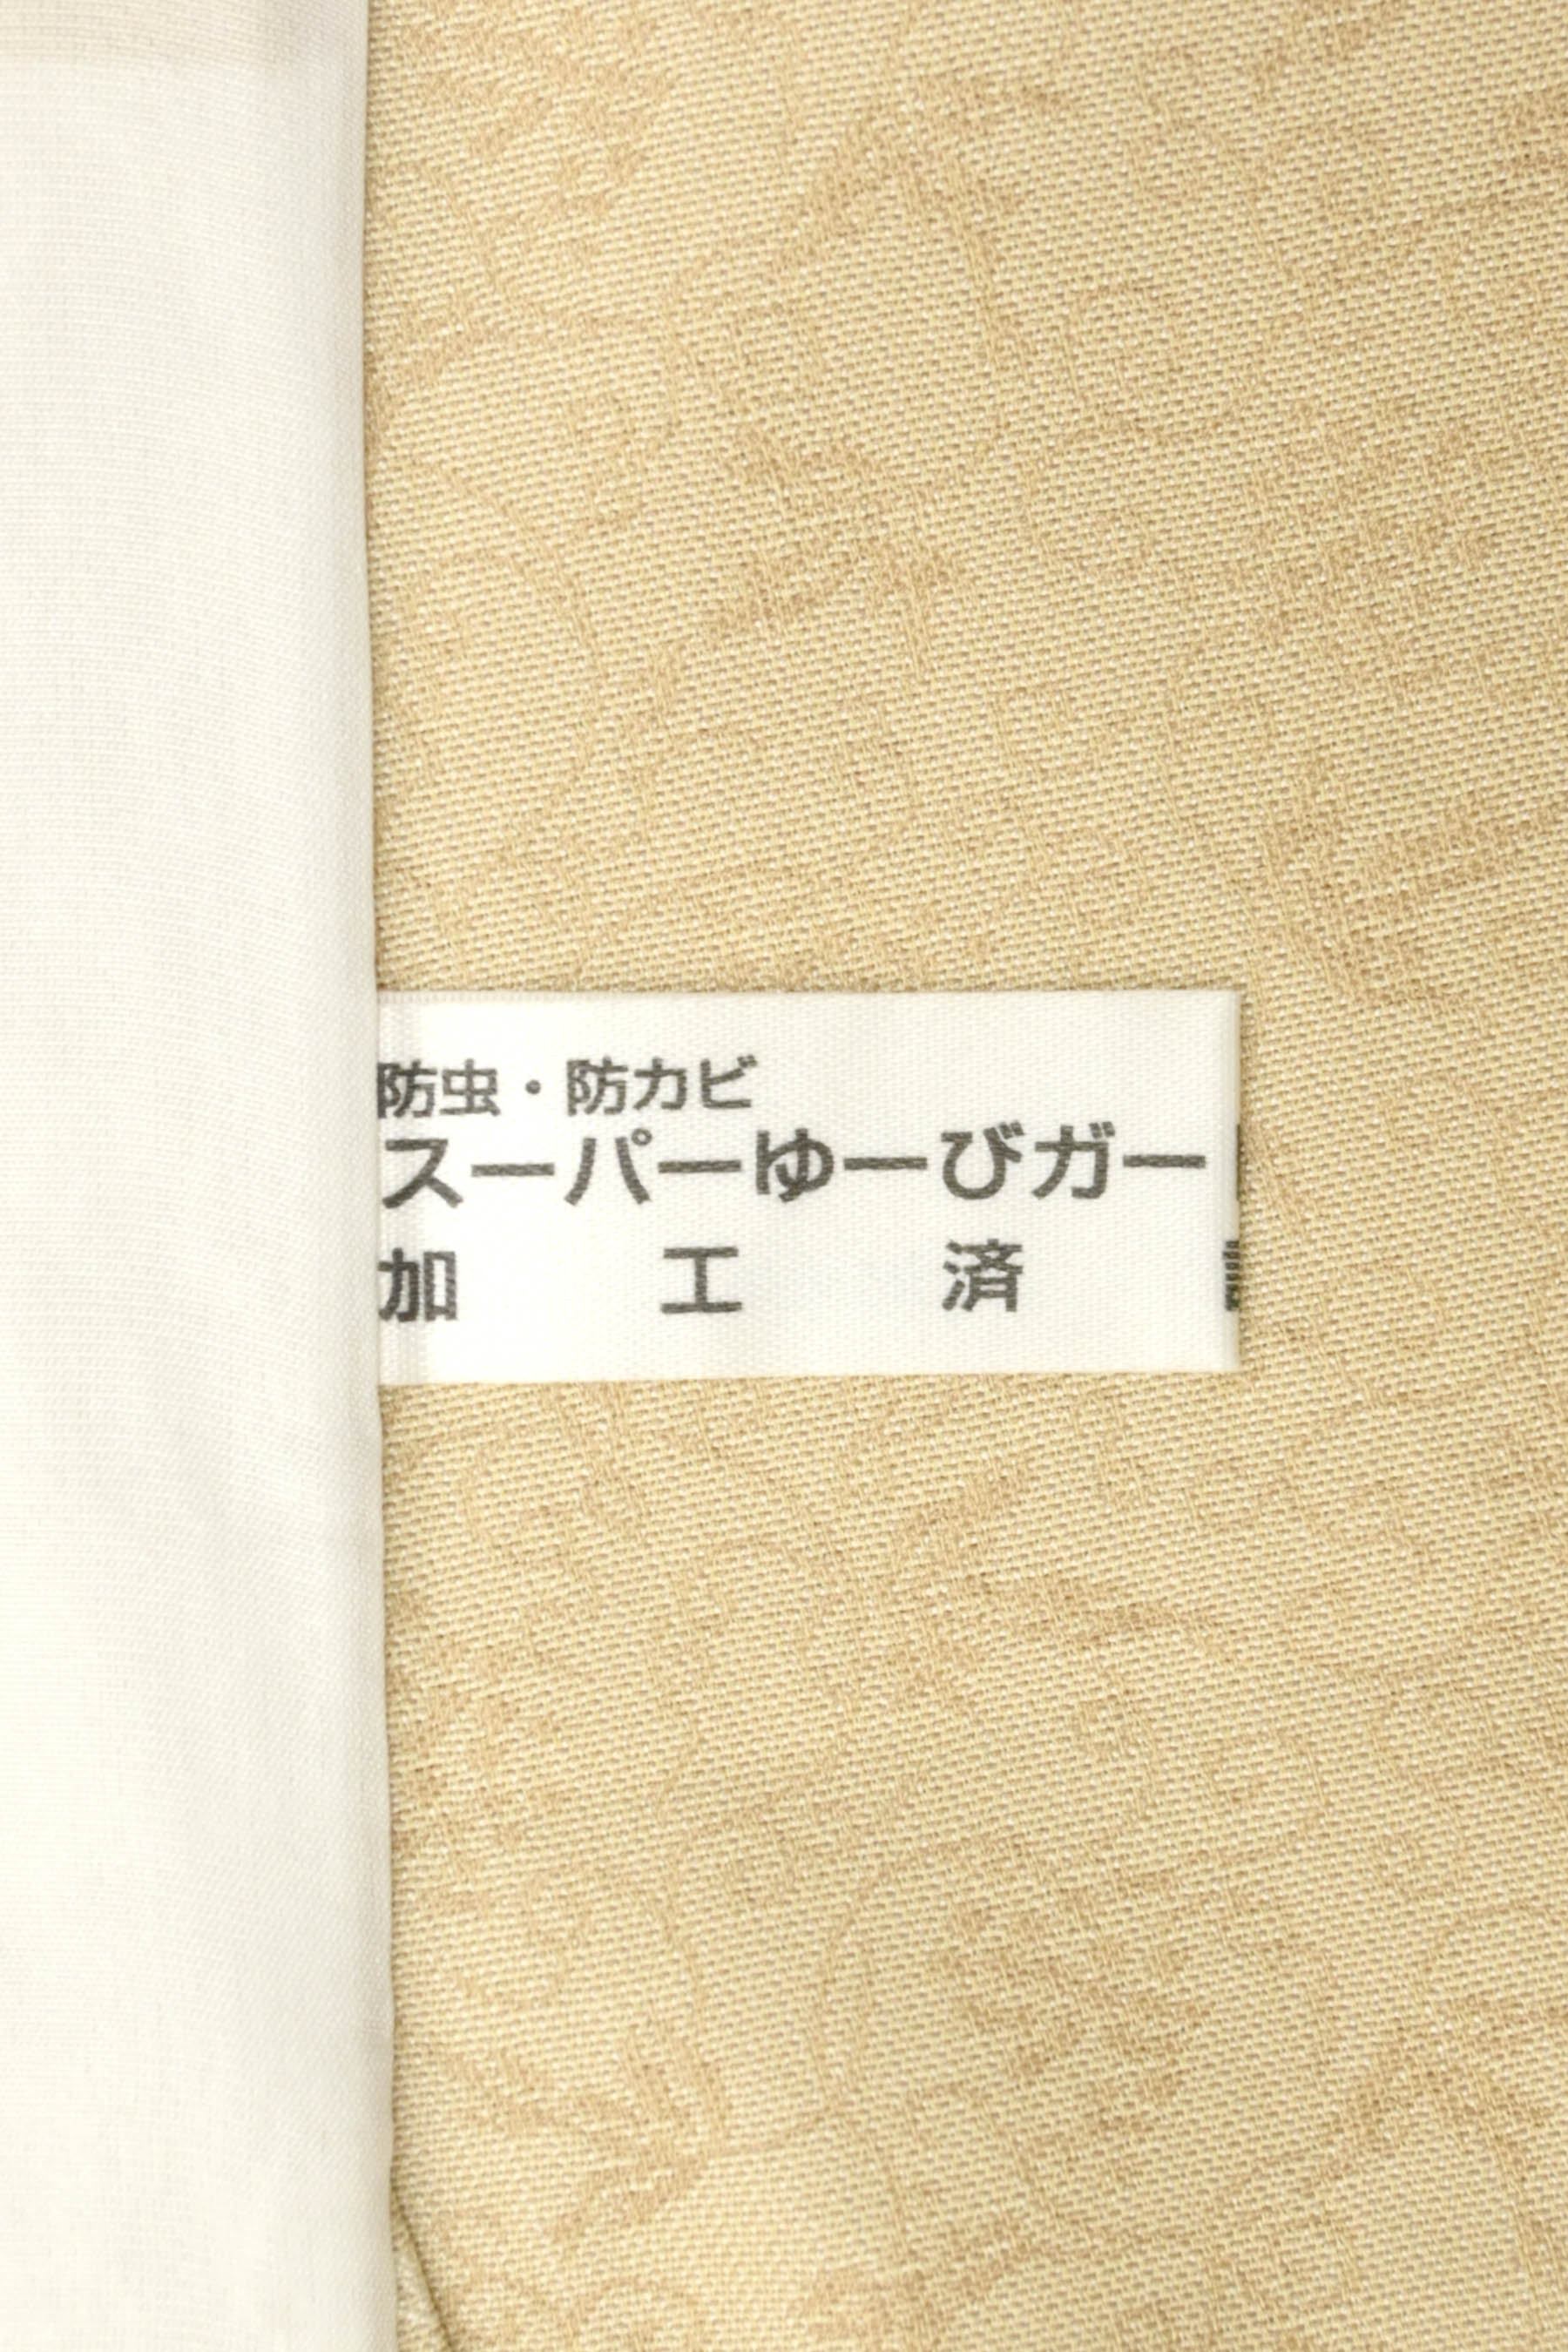 防虫・防カビ
スーパーゆーびガー
加 工 済